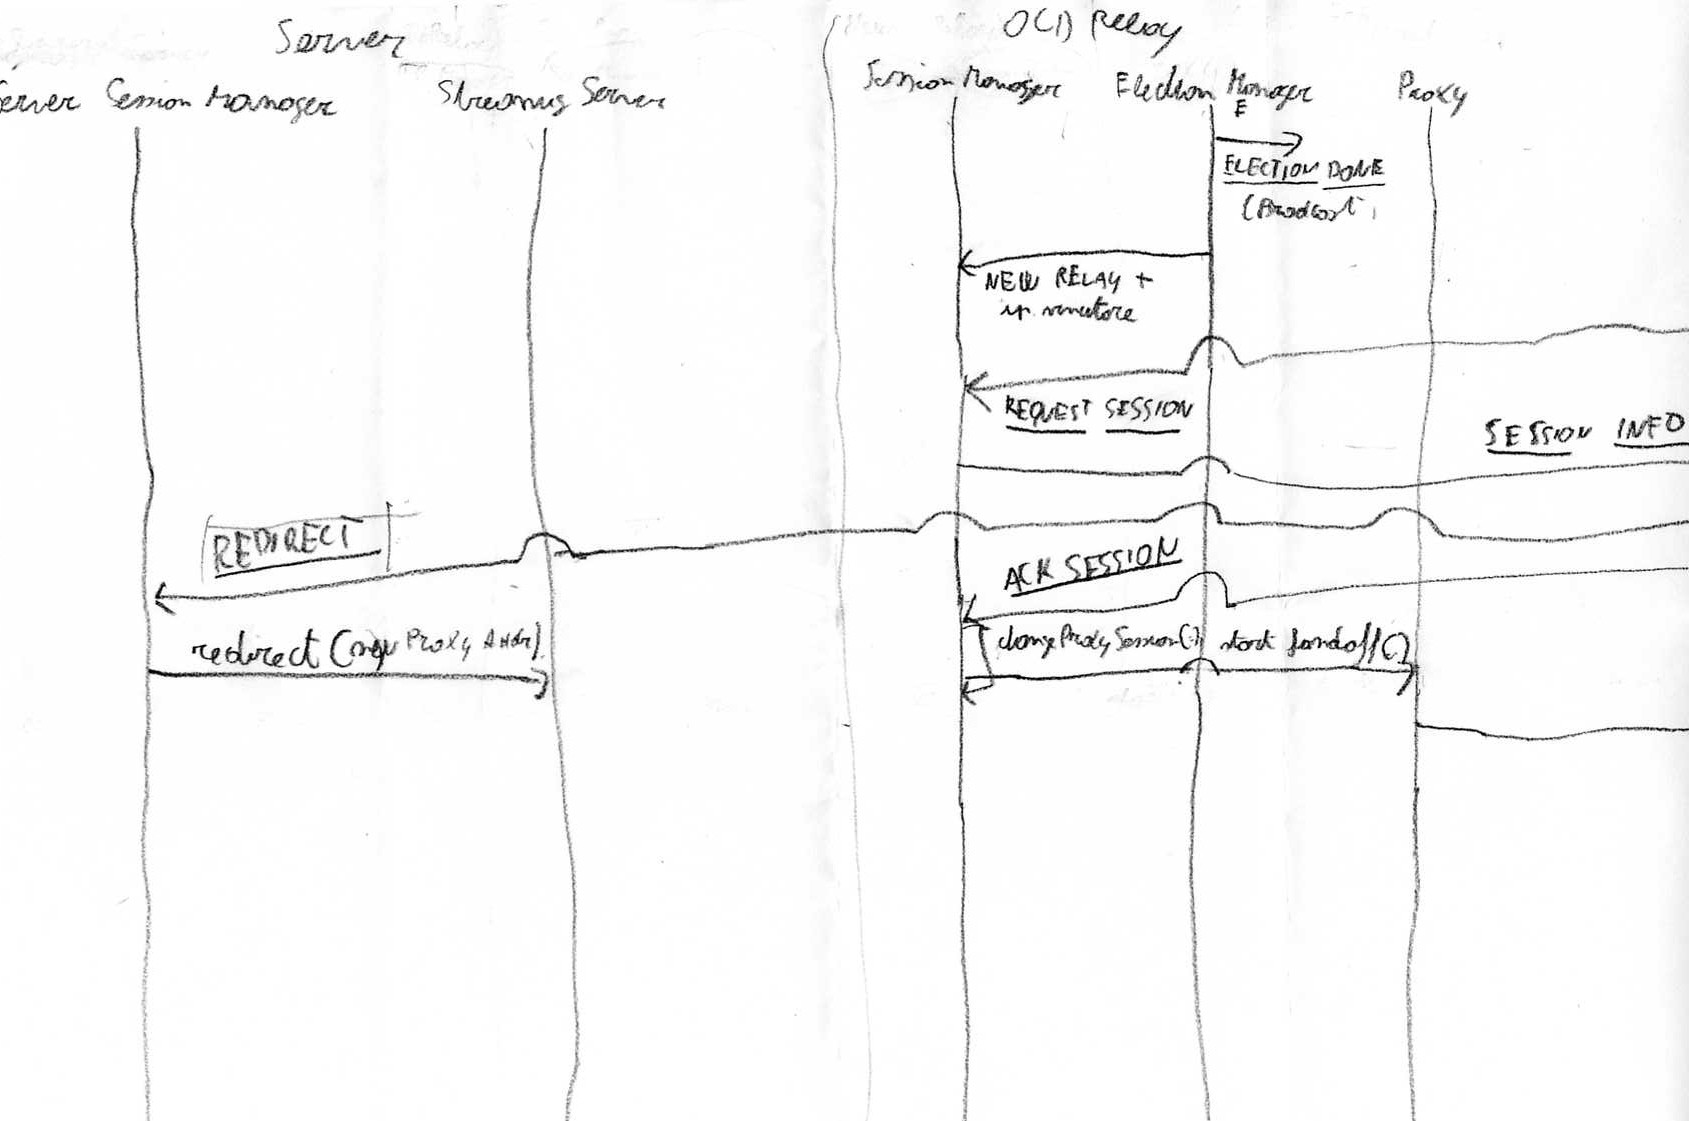 Server
OLD Relay
Server Session Manager
Streaming Server
Session Manager
Election Manager
E
Proxy
ELECTION DONE
(Broadcast)
NEW RELAY +
ip vincitore
REQUEST SESSION
SESSION INFO
REDIRECT
ACK SESSION
redirect (new Proxy Addr)
changeProxySession()
start handoff()